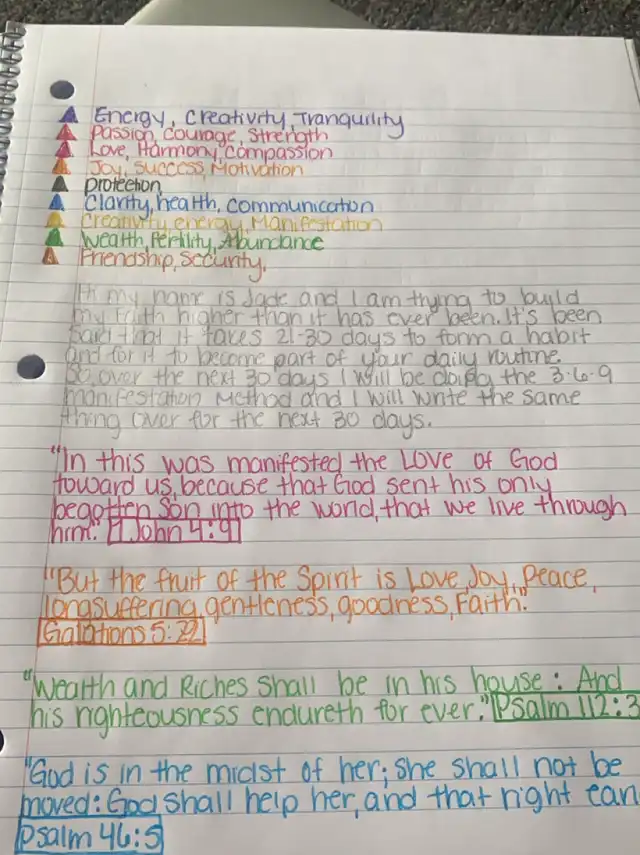 Energy, Creativity, Tranquility
Passion, Courage, Strength
Love, Harmony, Compassion
Joy, Success, Motivation
protection
Clarity, health, communication
Creativity, energy, Manifestation
Wealth, Fertility, Abundance
Friendship, Security,
Hi my name is Jade and I am trying to build
my Faith higher than it has ever been. It's been
said that it takes 21-30 days to form a habit
and for it to become part of your daily routine.
So, over the next 30 days I will be doing the 3-6-9
manifestation Method and I will write the same
thing over for the next 30 days.
"In this was manifested the Love of God
toward us, because that God sent his only
begotten Son into the world, that we live through
him." 1 John 4:9
"But the fruit of the Spirit is Love, Joy, Peace,
longsuffering, gentleness, goodness, Faith."
Galations 5:22
"Wealth and Riches Shall be in his house: And
his righteousness endureth for ever." Psalm 112:3
"God is in the midst of her; She shall not be
moved: God shall help her, and that right ear
Psalm 46:5